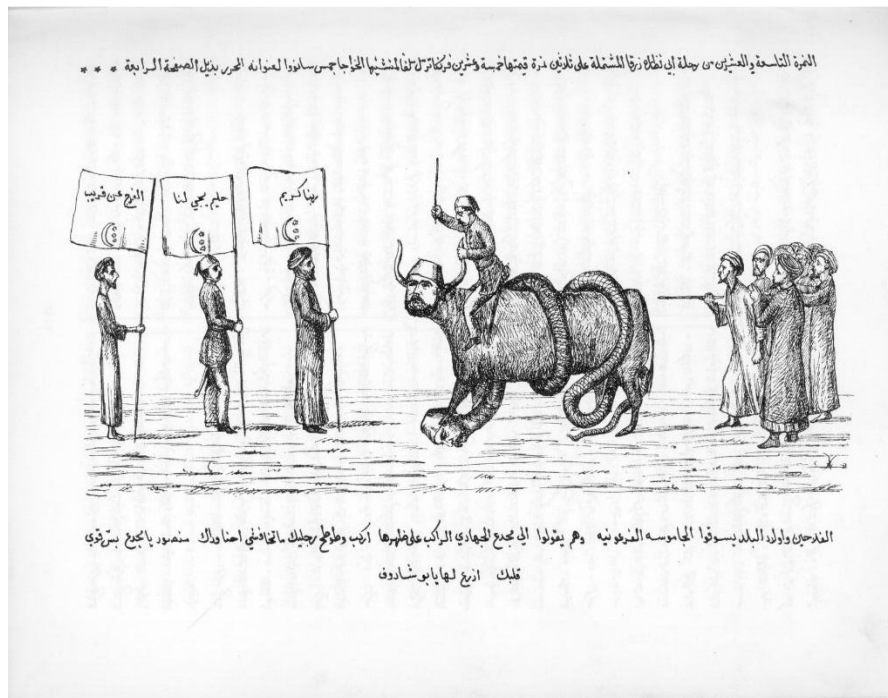 النمرة التاسعة والعشرين من رحلة ابي نظاره زرقا المشتملة على ثلاثين نمرة قيمتها خمسة وعشرين فرنكا ترسل سلفا لمنشئها الخواجا جمس سانووا لعنوانه المحرر بذيل الصفحة الرابعة * * *
ربنا كريم
حليم يجي لنا
الفرج عن قريب
الفلاحين واولاد البلد يسوقوا الجاموسه الفرعونيه وهم يقولوا الى مجدع الجهادي الراكب على ظهرها اركب وطوطح رجليك ما تخافشي احنا وراك منصور يا مجدع بس قوي
قلبك ازرع لها يا بو شادوف